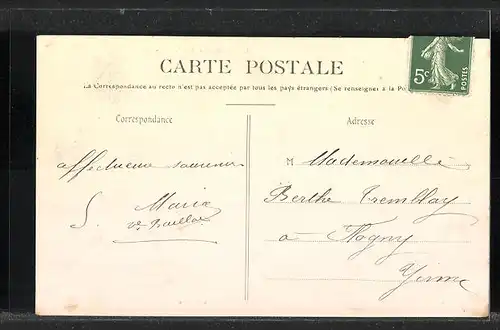 CARTE POSTALE
La Correspondance au recto n'est pas acceptée par tous les pays étrangers (Se renseigner à la Po
5c
POSTES
Correspondance
affectueux souvenir
S. Marie
Adresse
M Mademoiselle
Berthe Tremblay
à Flogny
Yonne